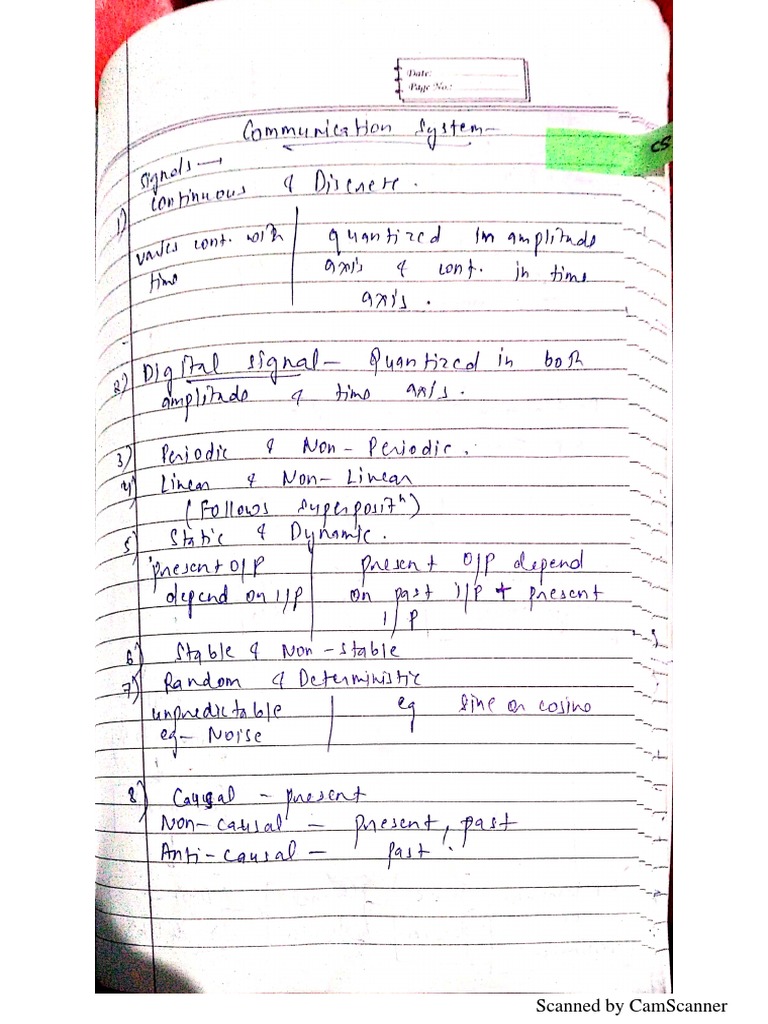 Date:
Page No.:
Communication System-
CS
Signals →
1) Continuous & Discrete.
varies cont. with
time
quantized in amplitude
axis & cont. in time
axis.
2) Digital signal - Quantized in both
amplitude & time axis.
3) Periodic & Non-Periodic.
4) Linear & Non-Linear
(Follows superpositⁿ)
5) Static & Dynamic.
present O/P
depend on I/P
present O/P depend
on past I/P + present
I/P
6) Stable & Non-stable
7) Random & Deterministic
unpredictable
eg- Noise
eg sine or cosine
8) Causal - present
Non-causal - present, past
Anti-causal - past.
Scanned by CamScanner